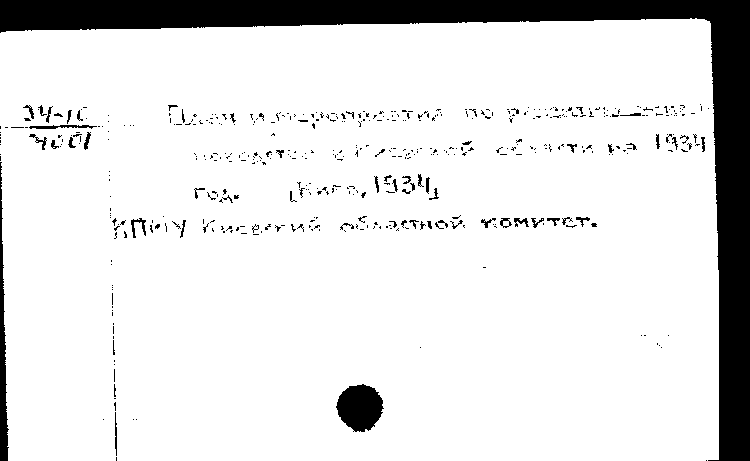 34-10
4001
План и мероприятия по развитию
в Киевской области на 1934
год. [Киев, 1934]
КП(б)У Киевский областной комитет.